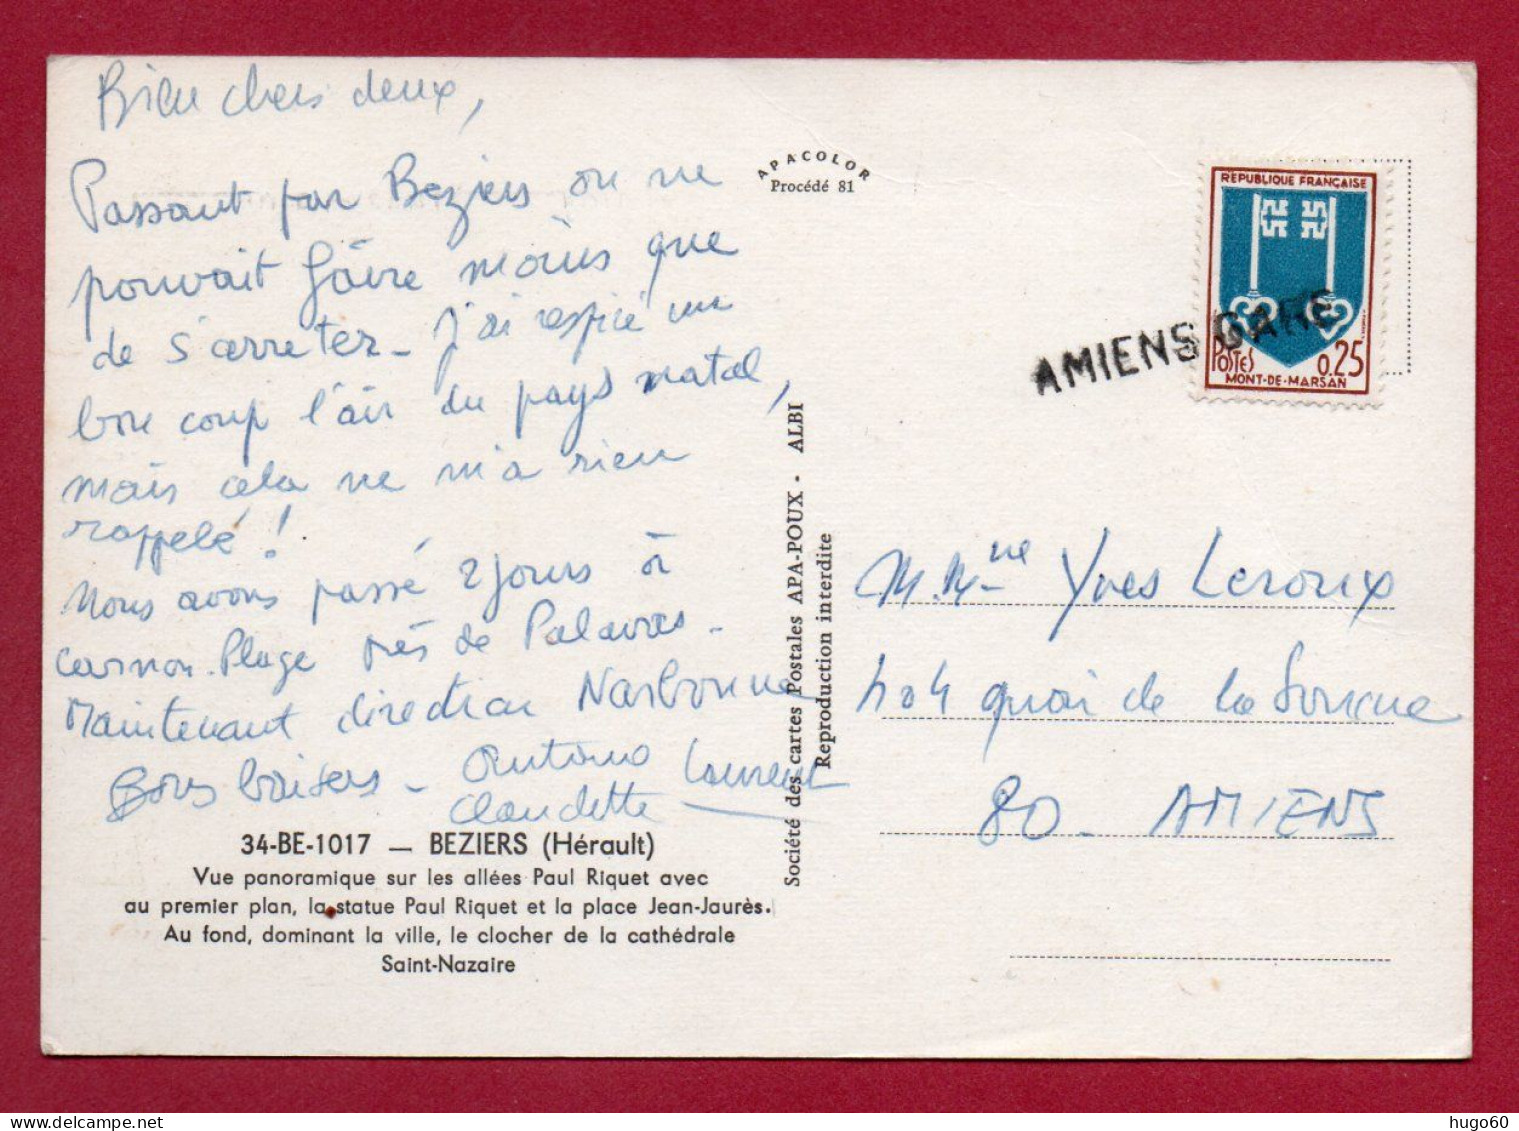 Bien chers deux,
Passant par Beziers on ne
pouvait faire moins que
de s'arreter - J'ai respiré un
bon coup l'air du pays natal,
mais cela ne m'a rien
rappelé !
Nous avons passé 2 jours à
Carnon-Plage près de Palavas -
Maintenant direction Narbonne
Bons baisers - Antonio Laurent
Claudette
34-BE-1017 — BEZIERS (Hérault)
Vue panoramique sur les allées Paul Riquet avec
au premier plan, la statue Paul Riquet et la place Jean-Jaurès.
Au fond, dominant la ville, le clocher de la cathédrale
Saint-Nazaire
APACOLOR
Procédé 81
Société des cartes Postales APA-POUX - ALBI
Reproduction interdite
REPUBLIQUE FRANÇAISE
POSTES 0,25
MONT-DE-MARSAN
AMIENS GARE
M. Mme Yves Leroux
404 quai de la Somme
80 - AMIENS
hugo60